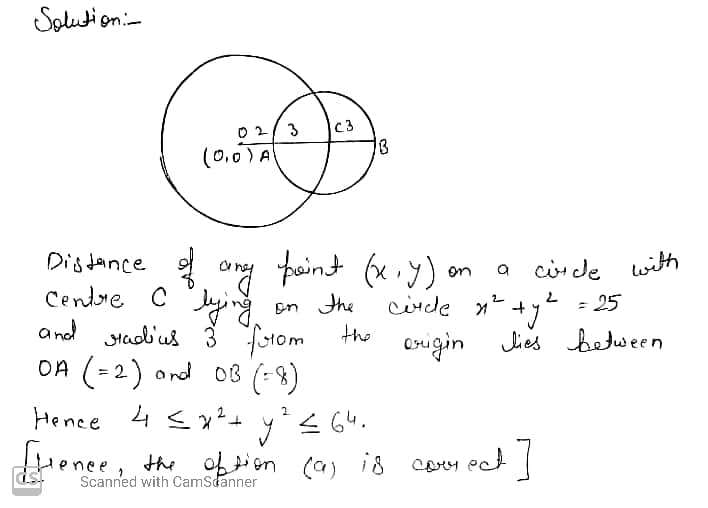 Solution:-
O 2 3 C3
(0,0) A B
Distance of any point (x, y) on a circle with
Centre C lying on the circle x² + y² = 25
and radius 3 from the origin lies between
OA (=2) and OB (=8)
Hence 4 ≤ x² + y² ≤ 64.
[Hence, the option (a) is correct]
CS Scanned with CamScanner